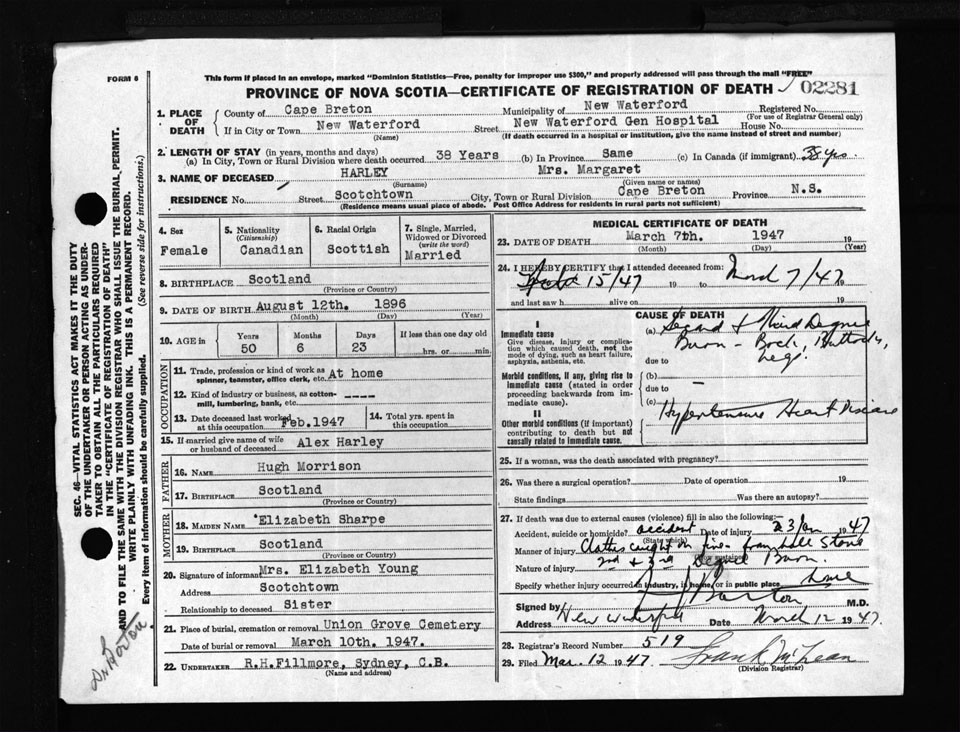 FORM 6
This form if placed in an envelope, marked "Dominion Statistics—Free, penalty for improper use $300," and properly addressed will pass through the mail "FREE"
PROVINCE OF NOVA SCOTIA—CERTIFICATE OF REGISTRATION OF DEATH 02281
1. PLACE OF DEATH
County of Cape Breton Municipality of New Waterford Registered No.
(For use of Registrar General only)
If in City or Town New Waterford Street New Waterford Gen Hospital House No.
(Name) (If death occurred in a hospital or institution, give the name instead of street and number)
2. LENGTH OF STAY (in years, months and days)
(a) In City, Town or Rural Division where death occurred 38 Years (b) In Province Same (c) In Canada (if immigrant) 38 yrs.
3. NAME OF DECEASED HARLEY Mrs. Margaret
(Surname) (Given name or names)
RESIDENCE No. Street Scotchtown City, Town or Rural Division Cape Breton Province N.S.
(Residence means usual place of abode. Post Office Address for residents in rural parts not sufficient)
4. Sex Female
5. Nationality (Citizenship) Canadian
6. Racial Origin Scottish
7. Single, Married, Widowed or Divorced (write the word) Married
8. BIRTHPLACE Scotland
(Province or Country)
9. DATE OF BIRTH August 12th. 1896
(Month) (Day) (Year)
10. AGE in Years Months Days If less than one day old
50 6 23 hrs. or min
OCCUPATION
11. Trade, profession or kind of work as spinner, teamster, office clerk, etc. At home
12. Kind of industry or business, as cotton-mill, lumbering, bank, etc. ----
13. Date deceased last worked at this occupation Feb.1947
14. Total yrs. spent in this occupation
15. If married give name of wife or husband of deceased Alex Harley
FATHER
16. NAME Hugh Morrison
17. BIRTHPLACE Scotland
(Province or Country)
MOTHER
18. MAIDEN NAME Elizabeth Sharpe
19. BIRTHPLACE Scotland
(Province or Country)
20. Signature of informant Mrs. Elizabeth Young
Address Scotchtown
Relationship to deceased Sister
21. Place of burial, cremation or removal Union Grove Cemetery
Date of burial or removal March 10th. 1947.
22. UNDERTAKER R.H.Fillmore, Sydney, C.B.
(Name and address)
MEDICAL CERTIFICATE OF DEATH
23. DATE OF DEATH March 7th. 1947 19
(Month) (Day) (Year)
24. I HEREBY CERTIFY that I attended deceased from:
15/47 19 to March 7/47 19
and last saw h alive on 19
CAUSE OF DEATH
I
Immediate cause
Give disease, injury or complication which caused death, not the mode of dying, such as heart failure, asphyxia, asthenia, etc.
(a) Second & Third Degree
Burn - Back, Buttocks,
due to Legs
Morbid conditions, if any, giving rise to immediate cause (stated in order proceeding backwards from immediate cause).
(b) —
due to
(c)
II
Other morbid conditions (if important) contributing to death but not causally related to immediate cause.
Hypertensive Heart Disease
25. If a woman, was the death associated with pregnancy?
26. Was there a surgical operation? Date of operation 19
State findings Was there an autopsy?
27. If death was due to external causes (violence) fill in also the following:—
Accident, suicide or homicide? accident Date of injury 23 Jan 1947
(State which)
Manner of injury Clothes caught on fire from Stove
(How sustained)
Nature of injury 2nd & 3rd Degree Burn.
Specify whether injury occurred in industry, in home, or in public place
Signed by Barton M.D.
Address New Waterford Date March 12 1947.
28. Registrar's Record Number 519
29. Filed Mar. 12 1947 Frank McLean
(Division Registrar)
SEC. 46—VITAL STATISTICS ACT MAKES IT THE DUTY
OF THE UNDERTAKER OR PERSON ACTING AS UNDER-
TAKER TO OBTAIN ALL THE PARTICULARS REQUIRED
IN THE "CERTIFICATE OF REGISTRATION OF DEATH"
AND TO FILE THE SAME WITH THE DIVISION REGISTRAR WHO SHALL ISSUE THE BURIAL PERMIT.
WRITE PLAINLY WITH UNFADING INK. THIS IS A PERMANENT RECORD.
Every item of information should be carefully supplied. (See reverse side for instructions.)